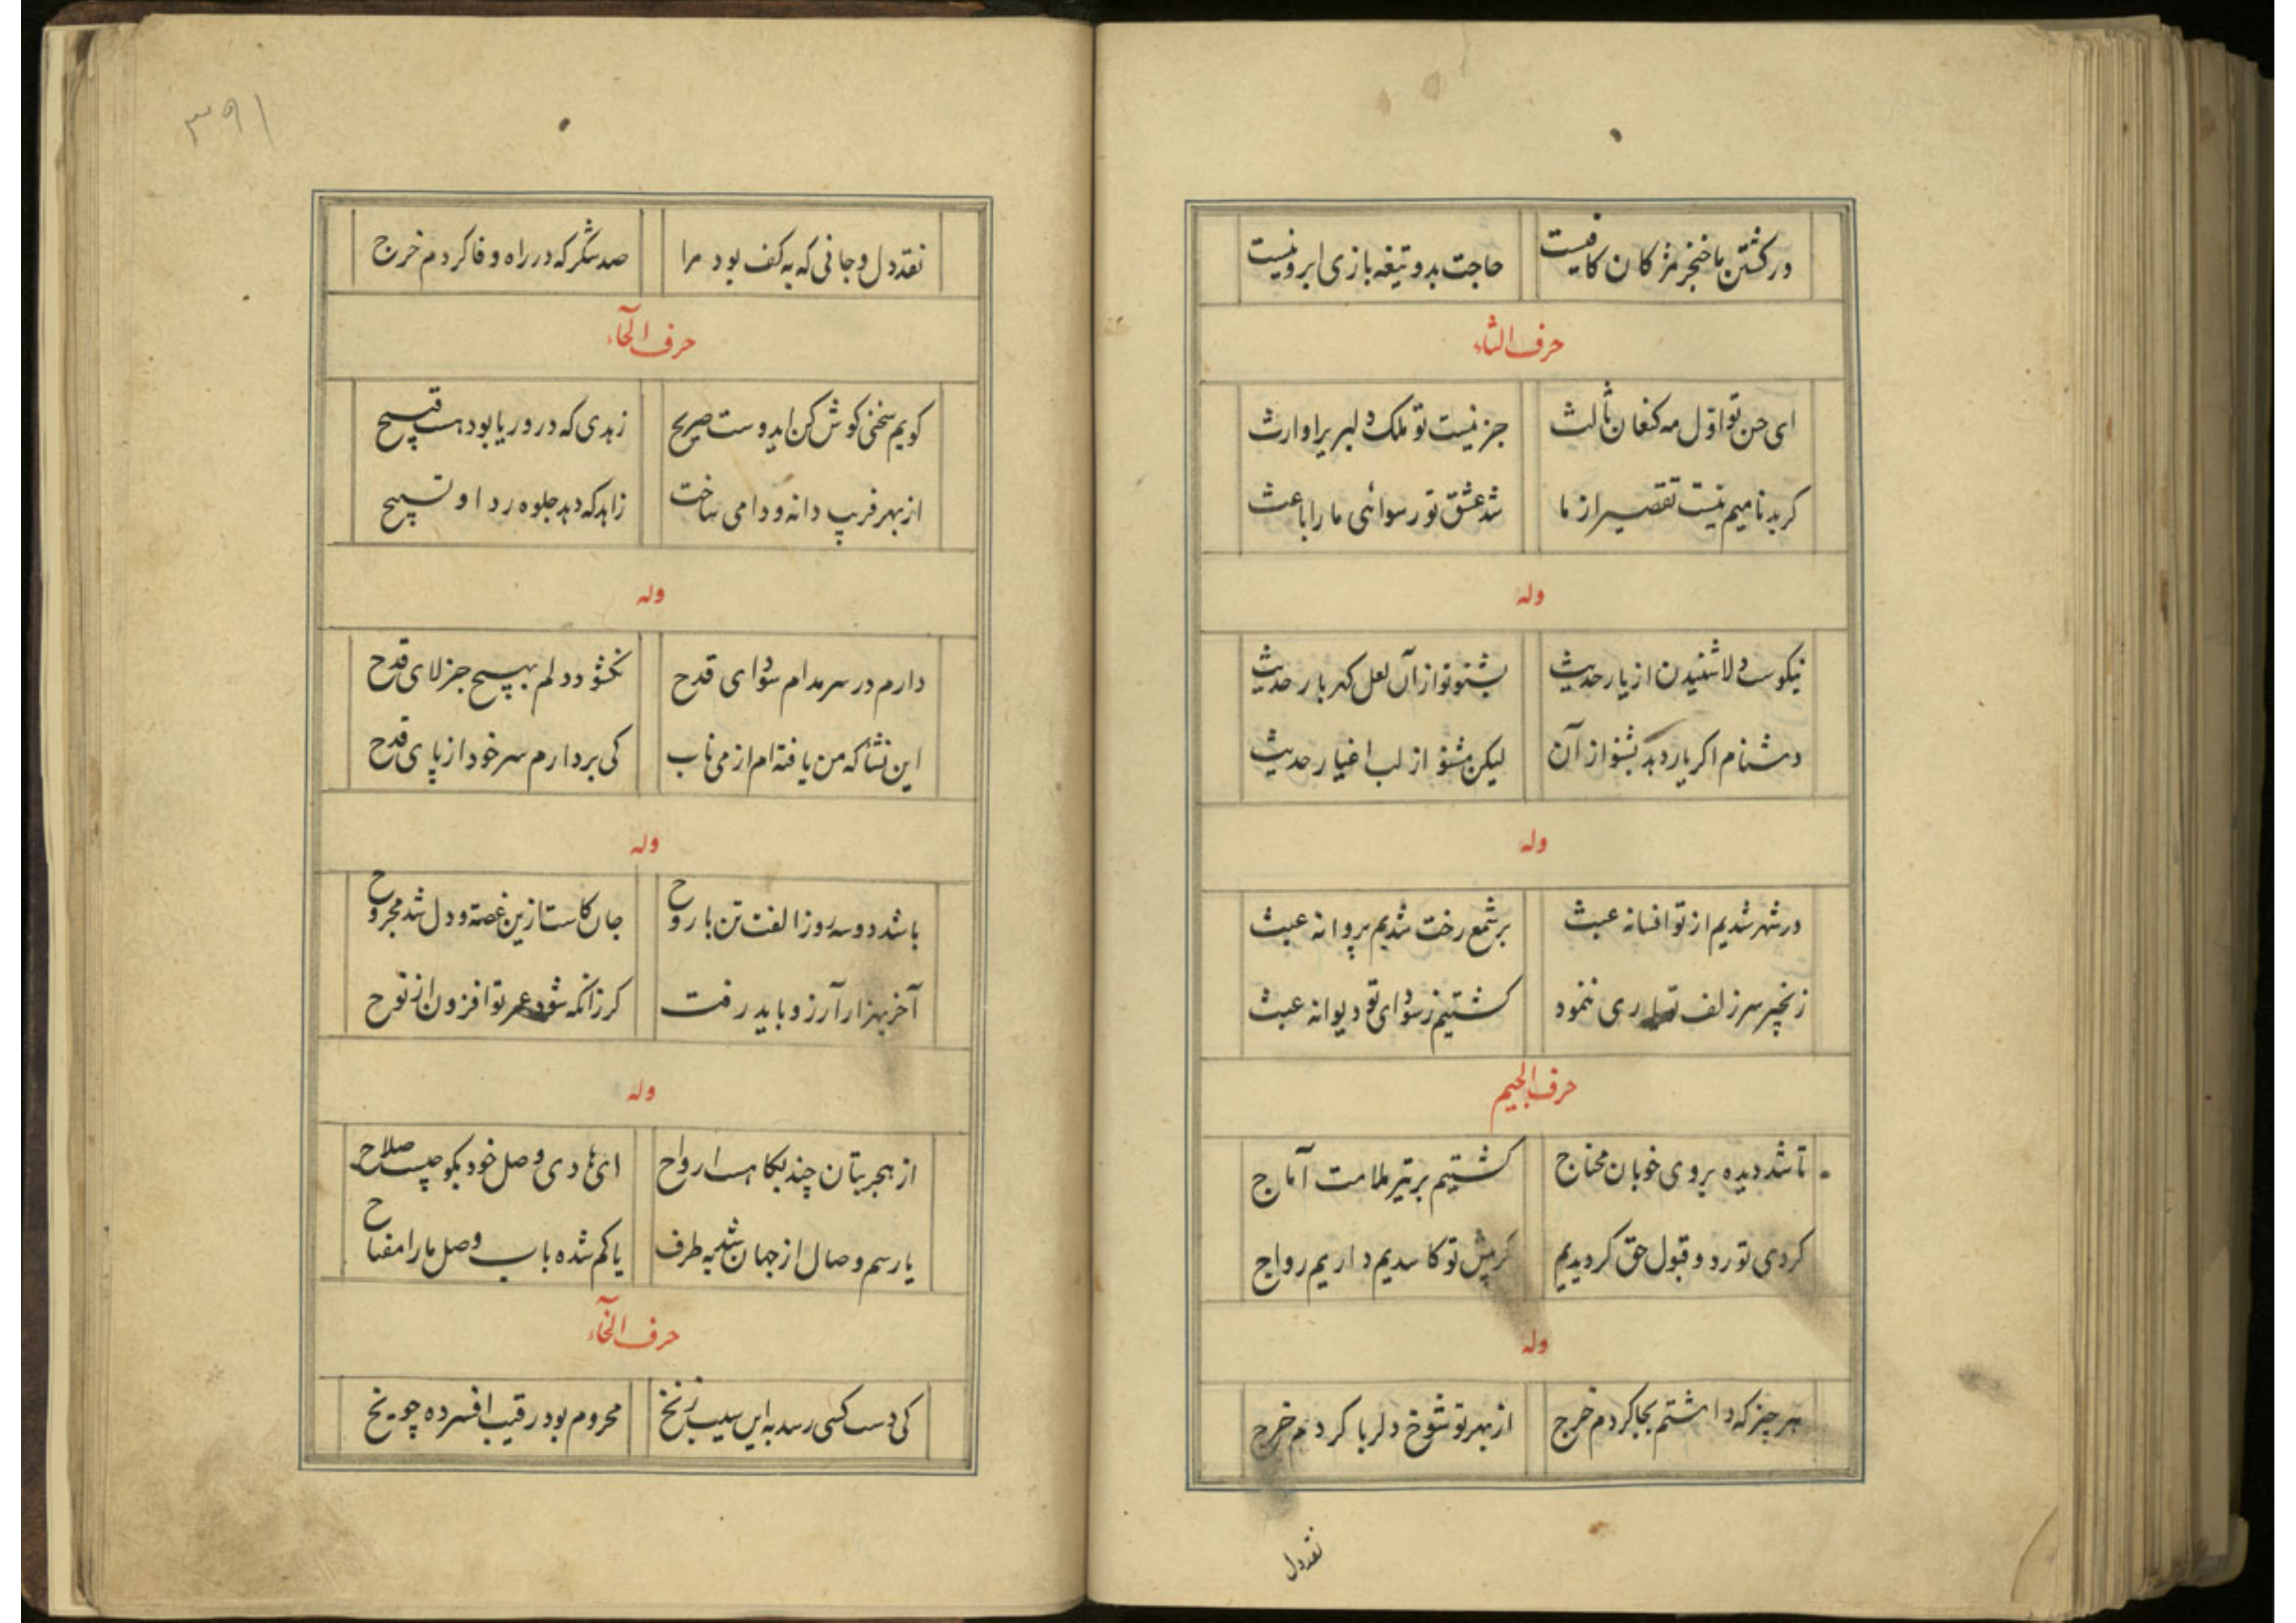 در کشتن ما خنجر مژکان کافیست حاجت بدو تیغه بازی ابرو نیست
حرف الثاء
ای حسن تو اوّل مه کنعان ثالث جز نیست تو ملک دلبریرا وارث
کر بدنامیم نیست تقصیر از ما شد عشق تو رسوائی ما را باعث
وله
نیکوست دلا شنیدن از یار حدیث بشنو تو از آن لعل کهربار حدیث
دشنام اکر یار دهد بشنو از آن لیکن مشنو از لب اغیار حدیث
وله
در شهر شدیم از تو افسانه عبث بر شمع رخت شدیم پروانه عبث
زنجیر سر زلف تو یاری ننمود کشتیم ز سودای تو دیوانه عبث
حرف الجیم
تا شد دیده بروی خوبان محتاج کشتیم بر تیر ملامت آماج
کردی تو رد و قبول حق کردیدیم کر پیش تو کاسدیم داریم رواج
وله
هر چیز که داشتم بجا کردم خرج از بهر تو شوخ دلربا کردم خرج
نقد دل
۳۹۱
نقد دل و جانی که به کف بود مرا صد شکر که در راه وفا کردم خرج
حرف الحآء
کویم سخنی کوش کن ایدوست صریح زهدی که درو ریا بود هست قبیح
از بهر فریب دانه و دامی ساخت زاهد که دهد جلوه ردا و تسبیح
وله
دارم در سر مدام سودای قدح نکشود دلم بهیچ جز لای قدح
این نشأ که من یافته ام از می ناب کی بردارم سر خود از پای قدح
وله
باشد دو سه روز الفت تن با روح جان کاست ازین غصه و دل شد مجروح
آخر بهزار آرزو باید رفت کر زانکه شود عمر تو افزون از نوح
وله
از هجر بتان چند بکاهست ارواح ای هادی وصل خود بکو چیست صلاح
یا رسم وصال از جهان شد به طرف یا کم شده باب وصل ما را مفتاح
حرف الخآء
کی دست کسی رسد به این سیب زنخ محروم بود رقیب افسرده چو یخ